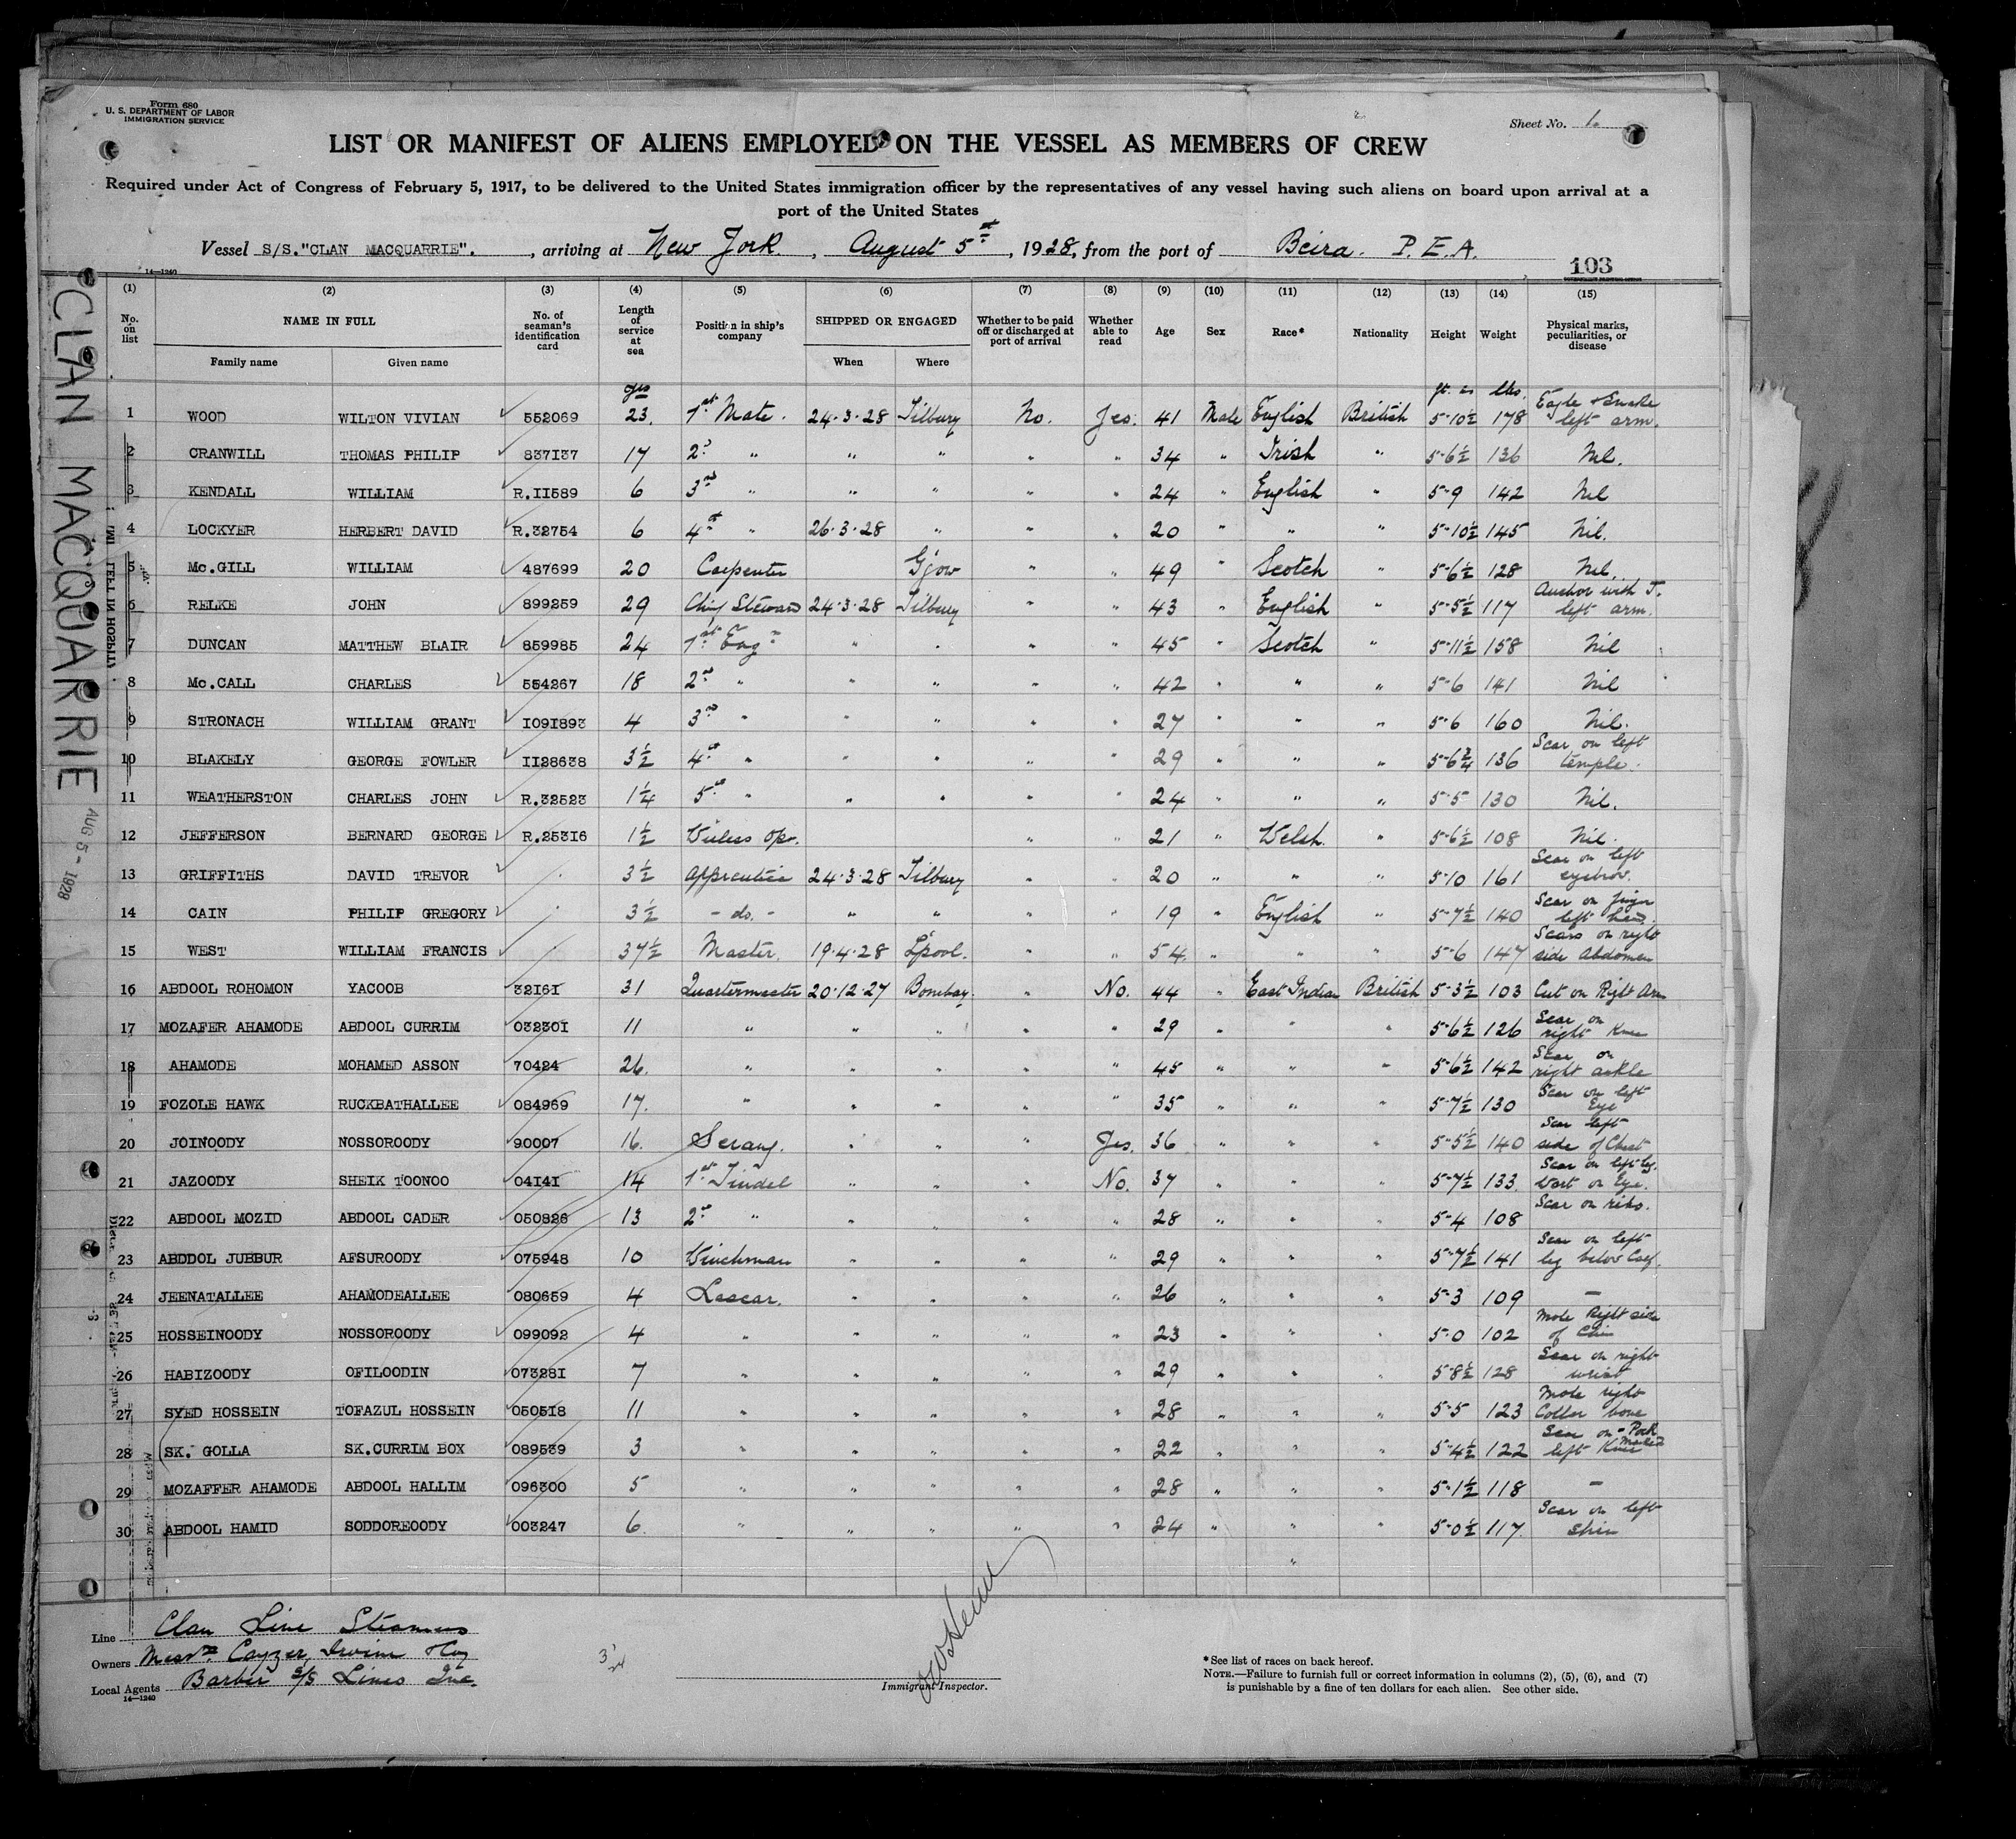 Form 680
U. S. DEPARTMENT OF LABOR
IMMIGRATION SERVICE
Sheet No. 1.
LIST OR MANIFEST OF ALIENS EMPLOYED ON THE VESSEL AS MEMBERS OF CREW
Required under Act of Congress of February 5, 1917, to be delivered to the United States immigration officer by the representatives of any vessel having such aliens on board upon arrival at a
port of the United States
Vessel S/S. "CLAN MACQUARRIE". , arriving at New York. , August 5th , 1928, from the port of Beira. P. E. A.
14—1240
103
CLAN MACQUARRIE AUG 5 - 1928
(1) (2) (3) (4) (5) (6) (7) (8) (9) (10) (11) (12) (13) (14) (15)
No. on list NAME IN FULL Family name Given name No. of seaman's identification card Length of service at sea Position in ship's company SHIPPED OR ENGAGED When Where Whether to be paid off or discharged at port of arrival Whether able to read Age Sex Race* Nationality Height Weight Physical marks, peculiarities, or disease
yrs ft. in lbs.
1 WOOD WILTON VIVIAN 552069 23. 1st Mate. 24.3.28 Tilbury No. Yes. 41 Male English British 5-10½ 178 Eagle & Snake left arm.
2 CRANWILL THOMAS PHILIP 837137 17 2d " " " " " 34 " Irish " 5-6½ 136 Nil.
3 KENDALL WILLIAM R.II589 6 3rd " " " " " 24 " English " 5-9 142 Nil
4 LOCKYER HERBERT DAVID R.32754 6 4th " 26.3.28 " " " 20 " " " 5-10½ 145 Nil.
5 Mc.GILL WILLIAM 487699 20 Carpenter G'gow " " 49 " Scotch " 5-6½ 128 Nil.
6 RELKE JOHN 899259 29 Chief Steward 24.3.28 Tilbury " " 43 " English " 5-5½ 117 Anchor with J. left arm.
7 DUNCAN MATTHEW BLAIR 859985 24 1st Eng " " " " 45 " Scotch " 5-11½ 158 Nil
8 Mc.CALL CHARLES 554267 18 2nd " " " " " 42 " " " 5-6 141 Nil
9 STRONACH WILLIAM GRANT I09I893 4 3rd " " " " " 27 " " " 5-6 160 Nil.
10 BLAKELY GEORGE FOWLER II28638 3½ 4th " " " " " 29 " " " 5-6¾ 136 Scar on left temple.
11 WEATHERSTON CHARLES JOHN R.32523 1¼ 5th " " " " " 24 " " " 5-5 130 Nil.
12 JEFFERSON BERNARD GEORGE R.253I6 1½ Wireless Opr. " " 21 " Welsh. " 5-6½ 108 Nil.
13 GRIFFITHS DAVID TREVOR 3½ Apprentice 24.3.28 Tilbury " " 20 " " " 5-10 161 Scar on left eyebrow.
14 CAIN PHILIP GREGORY 3½ - do. - " " " " 19 " English " 5-7½ 140 Scar on finger left hand.
15 WEST WILLIAM FRANCIS 37½ Master. 19.4.28 L'pool. " " 54. " " " 5-6 147 Scars on right side Abdomen
16 ABDOOL ROHOMON YACOOB 32I6I 31 Quartermaster 20.12.27 Bombay. " No. 44 " East Indian British 5-3½ 103 Cut on Right Arm
17 MOZAFER AHAMODE ABDOOL CURRIM 03230I 11 " " " " " 29 " " " 5-6½ 126 Scar on right Knee
18 AHAMODE MOHAMED ASSON 70424 26. " " " " " 45 " " " 5-6½ 142 Scar on right ankle
19 FOZOLE HAWK RUCKBATHALLEE 084969 17. " " " " " 35 " " " 5-7½ 130 Scar on left Eye
20 JOINOODY NOSSOROODY 90007 16. Serang. " " " Yes. 36 " " " 5-5½ 140 Scar left side of Chest
21 JAZOODY SHEIK TOONOO 04I4I 14 1st Tindal " " " No. 37 " " " 5-7½ 133 Scar on left leg. Wart on Eye.
22 ABDOOL MOZID ABDOOL CADER 050826 13 2nd " " " " " 28 " " " 5-4 108 Scar on ribs.
23 ABDDOL JUBBUR AFSUROODY 075948 10 Winchman " " " " 29 " " " 5-7½ 141 Scar on left leg below Calf.
24 JEENATALLEE AHAMODEALLEE 080659 4 Lascar. " " " " 26 " " " 5-3 109 —
25 HOSSEINOODY NOSSOROODY 099092 4 " " " " " 23 " " " 5-0 102 Mole Right side of Chin
26 HABIZOODY OFILOODIN 07328I 7 " " " " " 29 " " " 5-8½ 128 Scar on right wrist
27 SYED HOSSEIN TOFAZUL HOSSEIN 0505I8 11 " " " " " 28 " " " 5-5 123 Mole right Collar bone
28 SK. GOLLA SK.CURRIM BOX 089539 3 " " " " " 22 " " " 5-4½ 122 Scar on left Knee - Pock Marked
29 MOZAFFER AHAMODE ABDOOL HALLIM 096300 5 " " " " " 28 " " " 5-1½ 118 —
30 ABDOOL HAMID SODDOREOODY 003247 6. " " " " " 24 " " " 5-0½ 117 Scar on left shin
Line Clan Line Steamers
Owners Messrs. Cayzer, Irvine &Coy
Local Agents Barber S/S Lines Inc.
14—1240
Immigrant Inspector.
*See list of races on back hereof.
NOTE.—Failure to furnish full or correct information in columns (2), (5), (6), and (7)
is punishable by a fine of ten dollars for each alien. See other side.